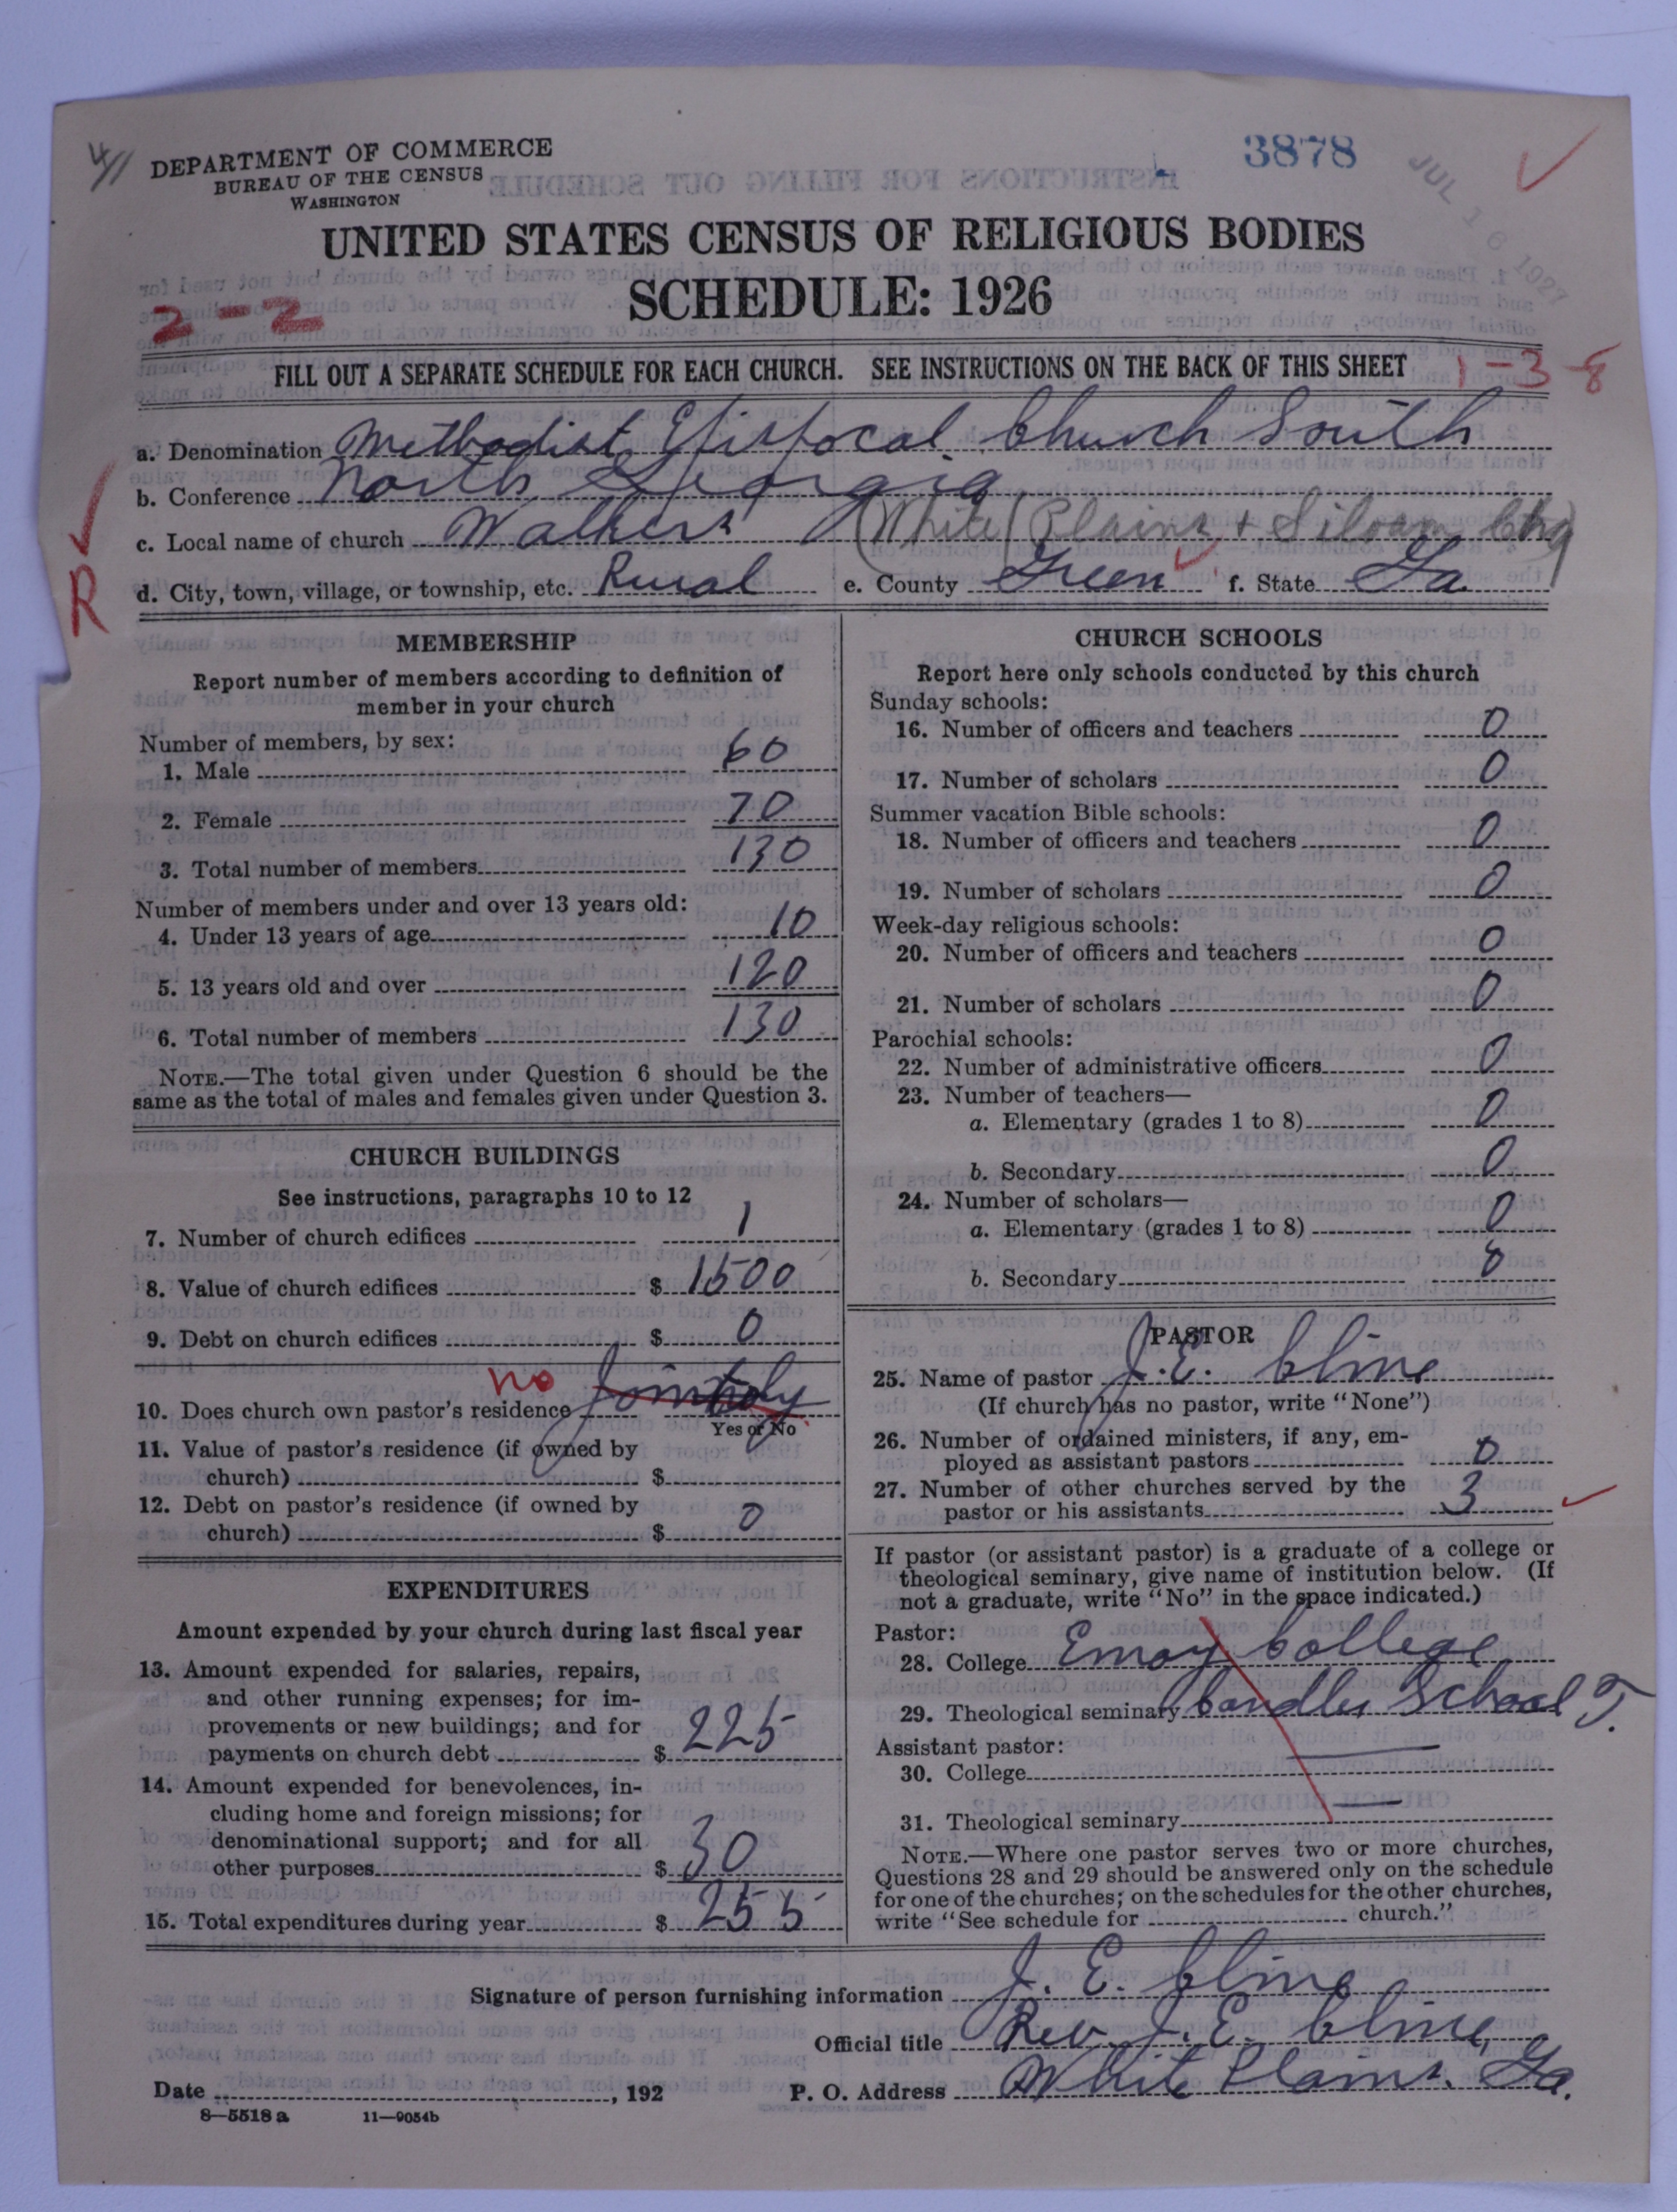 4/1
DEPARTMENT OF COMMERCE
BUREAU OF THE CENSUS
WASHINGTON
3878
JUL 16 1927
UNITED STATES CENSUS OF RELIGIOUS BODIES
SCHEDULE: 1926
2-2
FILL OUT A SEPARATE SCHEDULE FOR EACH CHURCH. SEE INSTRUCTIONS ON THE BACK OF THIS SHEET
1-3-8
a. Denomination Methodist Episcocal Church South
b. Conference North Georgia
c. Local name of church Walkers (White Plains + Siloam Chg)
R
d. City, town, village, or township, etc. Rural e. County Green f. State Ga.
MEMBERSHIP
Report number of members according to definition of
member in your church
Number of members, by sex:
1. Male 60
2. Female 70
3. Total number of members 130
Number of members under and over 13 years old:
4. Under 13 years of age 10
5. 13 years old and over 120
6. Total number of members 130
NOTE.—The total given under Question 6 should be the
same as the total of males and females given under Question 3.
CHURCH BUILDINGS
See instructions, paragraphs 10 to 12
7. Number of church edifices 1
8. Value of church edifices $ 1500
9. Debt on church edifices $ 0
10. Does church own pastor's residence no Jointly
Yes or No
11. Value of pastor's residence (if owned by
church) $
12. Debt on pastor's residence (if owned by
church) $ 0
EXPENDITURES
Amount expended by your church during last fiscal year
13. Amount expended for salaries, repairs,
and other running expenses; for im-
provements or new buildings; and for
payments on church debt $ 225
14. Amount expended for benevolences, in-
cluding home and foreign missions; for
denominational support; and for all
other purposes $ 30
15. Total expenditures during year $ 255
CHURCH SCHOOLS
Report here only schools conducted by this church
Sunday schools:
16. Number of officers and teachers 0
17. Number of scholars 0
Summer vacation Bible schools:
18. Number of officers and teachers 0
19. Number of scholars 0
Week-day religious schools:
20. Number of officers and teachers 0
21. Number of scholars 0
Parochial schools:
22. Number of administrative officers 0
23. Number of teachers—
a. Elementary (grades 1 to 8) 0
b. Secondary 0
24. Number of scholars—
a. Elementary (grades 1 to 8) 0
b. Secondary 0
PASTOR
25. Name of pastor J. E. Cline
(If church has no pastor, write "None")
26. Number of ordained ministers, if any, em-
ployed as assistant pastors 0
27. Number of other churches served by the
pastor or his assistants 3
If pastor (or assistant pastor) is a graduate of a college or
theological seminary, give name of institution below. (If
not a graduate, write "No" in the space indicated.)
Pastor:
28. College Emory College
29. Theological seminary Candler School T.
Assistant pastor:
30. College —
31. Theological seminary —
NOTE.—Where one pastor serves two or more churches,
Questions 28 and 29 should be answered only on the schedule
for one of the churches; on the schedules for the other churches,
write "See schedule for church."
Signature of person furnishing information J. E. Cline
Official title Rev J. E. Cline
Date , 192 P. O. Address White Plains. Ga.
8—5518 a 11—9054b